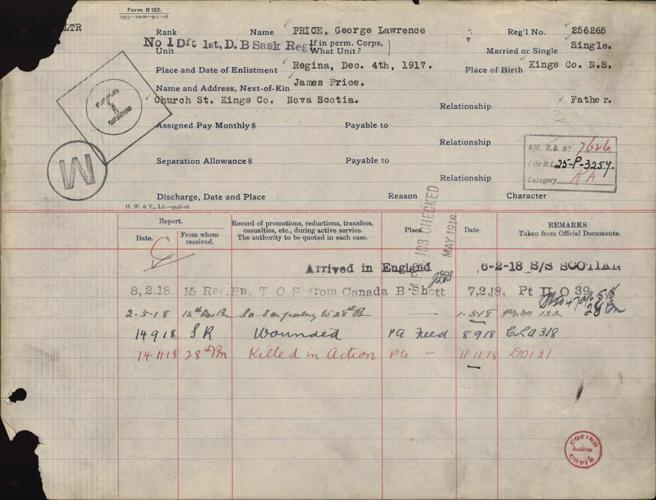 Form R 122.
LTR
Rank Name PRICE, George Lawrence Reg'l No. 256265
No 1 Dft 1st, D. B Sask Reg If in perm. Corps, Single.
Unit What Unit? Married or Single
Place and Date of Enlistment Regina, Dec. 4th, 1917. Place of Birth Kings Co. N.S.
Name and Address, Next-of-Kin James Price.
Church St. Kings Co. Nova Scotia. Relationship Father.
I
M
Assigned Pay Monthly $ Payable to
Relationship
N/E. R.B. No 7626
File R.L. 25-P-3259.
Category KA
Separation Allowance $ Payable to
Relationship
Discharge, Date and Place Reason Character
H. W. & V., Ld.
103 CHECKED
MAY 1918
Report.
Date. From whom received.
Record of promotions, reductions, transfers, casualties, etc., during active service.
The authority to be quoted in each case.
Place. Date.
REMARKS
Taken from Official Documents.
Arrived in England 6-2-18 S/S SCOTIAN
8.2.18 15 Res. Bn. T O S from Canada B Shott 7.2.18. Pt II O 39
2-5-18 15th Res Bn 28th Bn 1.5.18 122 28 Bn
14 9 18 S R Wounded Field 8 9 18 CLA318
14.11.18 28th Bn Killed in Action 11.11.18 DO131
COPIED
COPIÉ